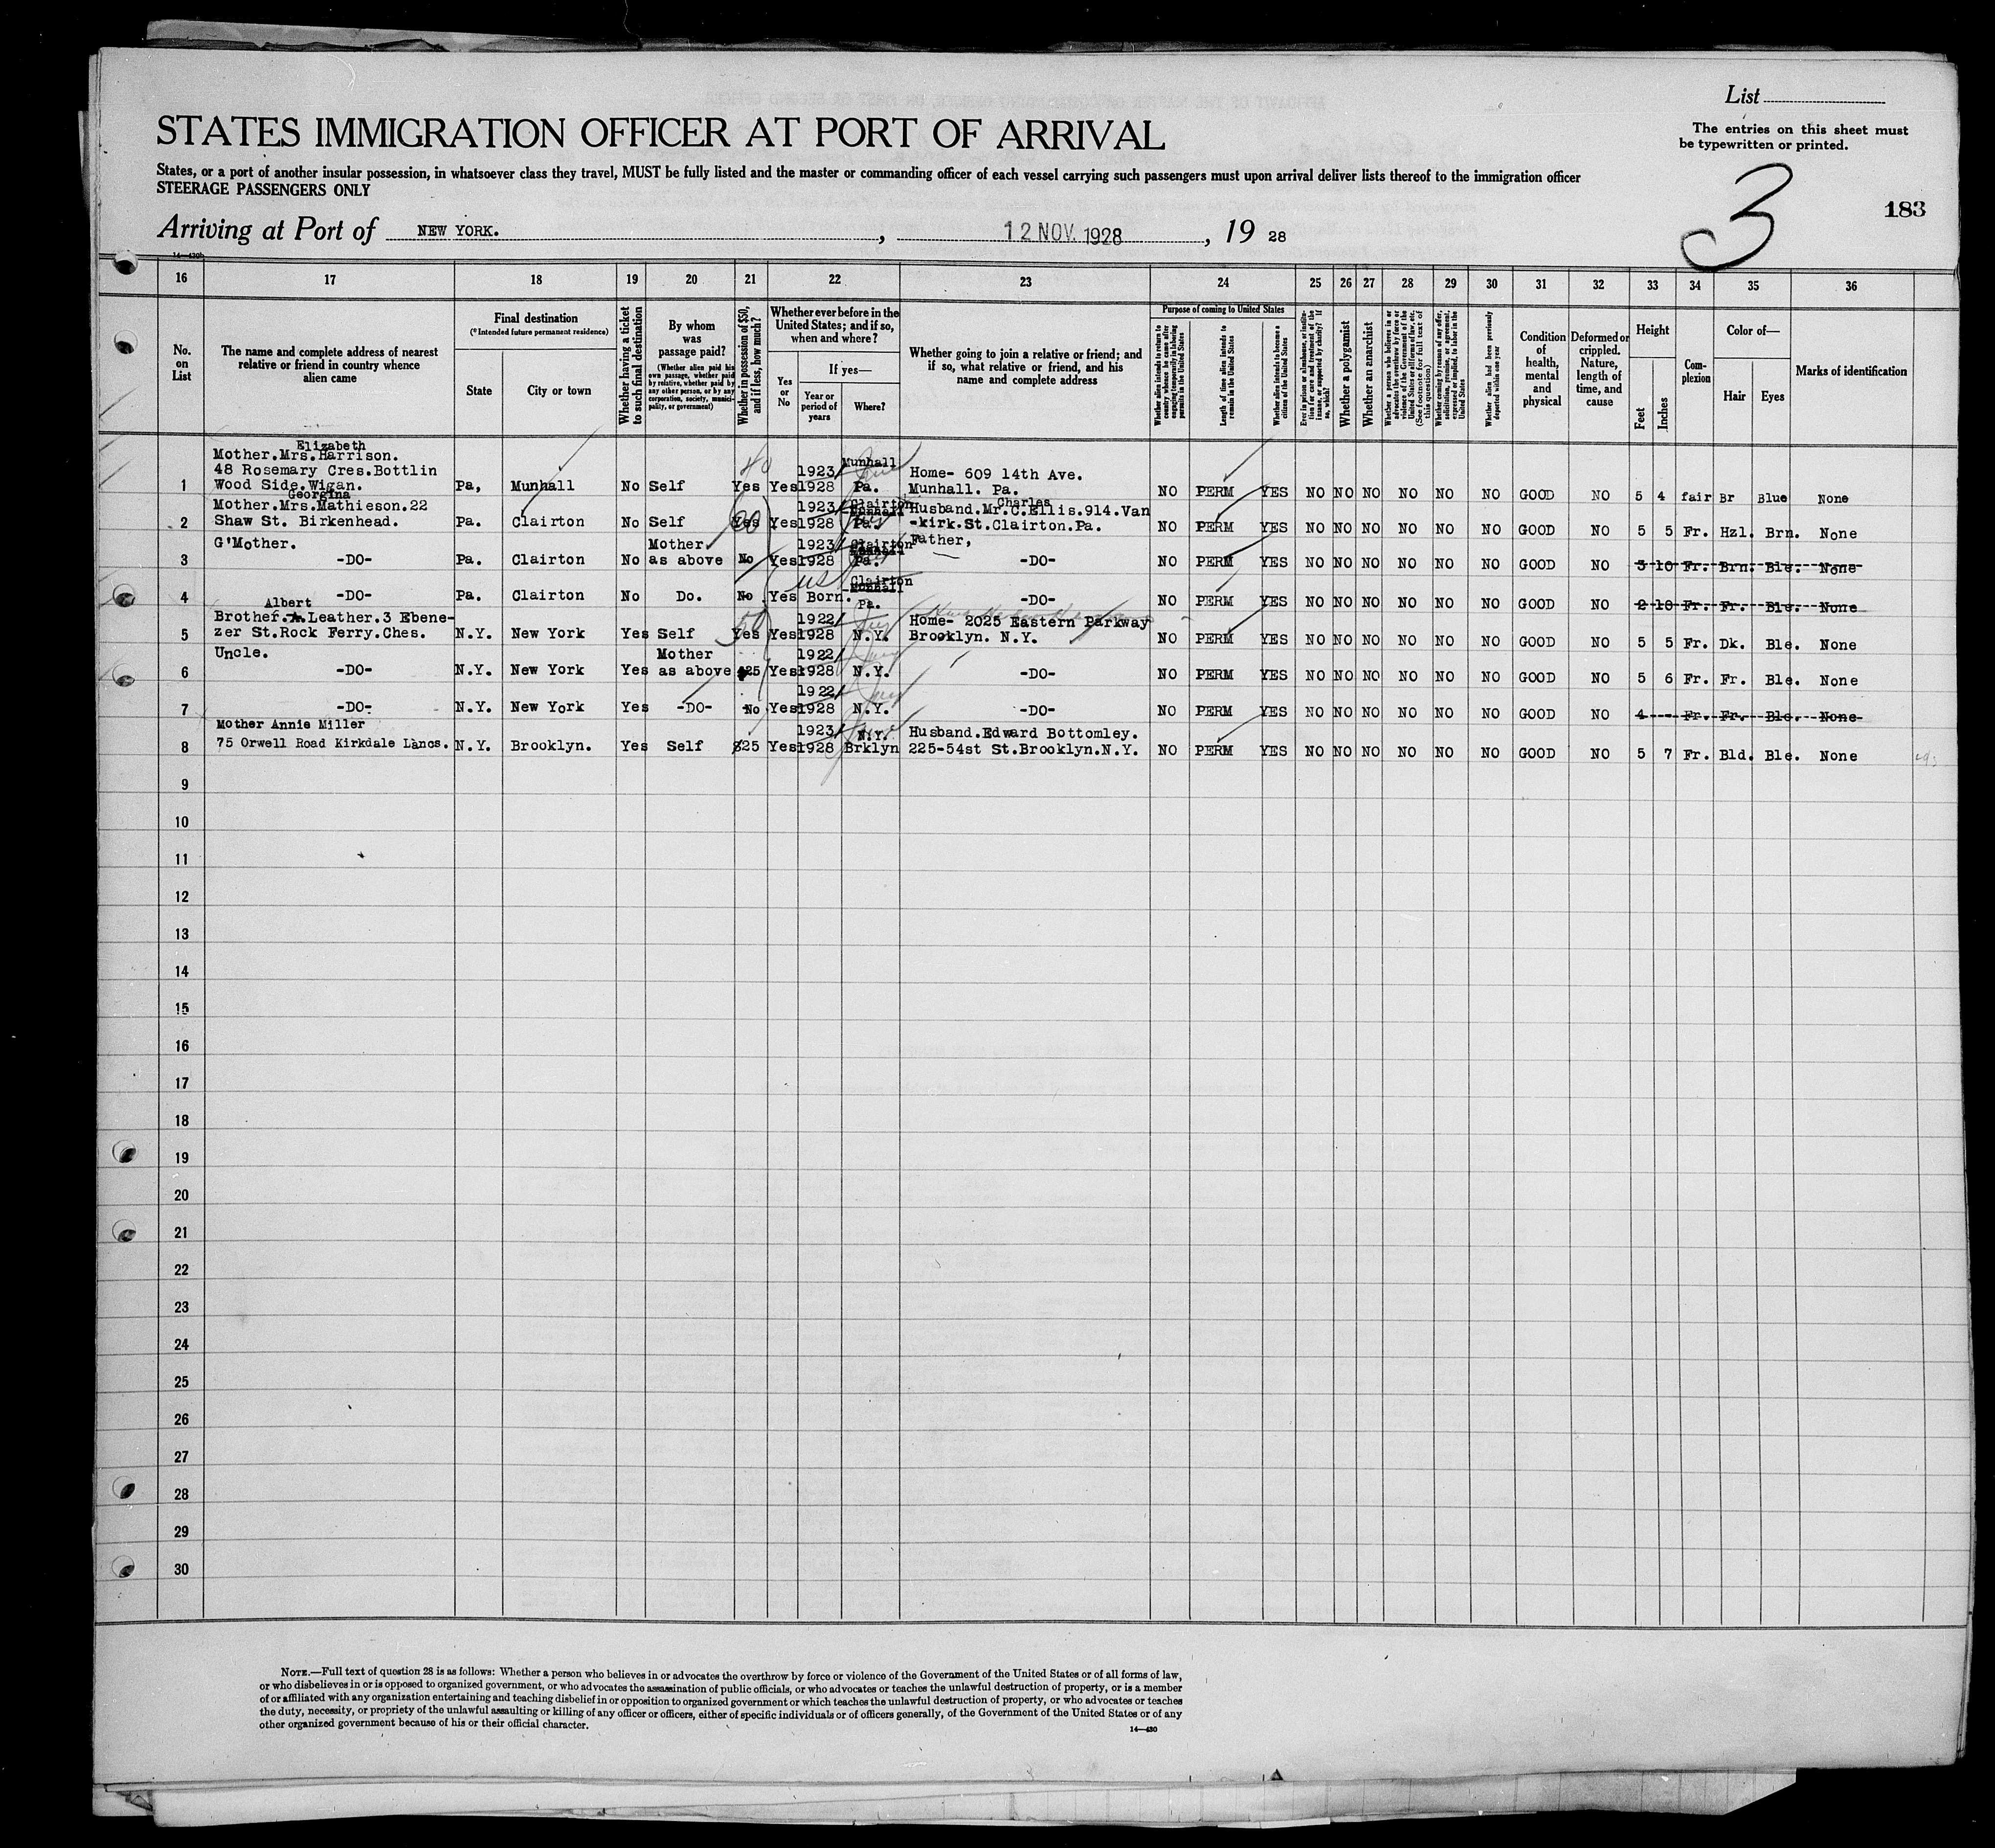 List
The entries on this sheet must
be typewritten or printed.
STATES IMMIGRATION OFFICER AT PORT OF ARRIVAL
States, or a port of another insular possession, in whatsoever class they travel, MUST be fully listed and the master or commanding officer of each vessel carrying such passengers must upon arrival deliver lists thereof to the immigration officer
STEERAGE PASSENGERS ONLY
3
183
Arriving at Port of NEW YORK. , 12 NOV. 1928 , 19 28
14—430b
16 17 18 19 20 21 22 23 24 25 26 27 28 29 30 31 32 33 34 35 36
No. on List
The name and complete address of nearest relative or friend in country whence alien came
Final destination
(*Intended future permanent residence)
State
City or town
Whether having a ticket to such final destination
By whom was passage paid?
(Whether alien paid his own passage, whether paid by relative, whether paid by any other person, or by any corporation, society, municipality, or government)
Whether in possession of $50, and if less, how much?
Whether ever before in the United States; and if so, when and where?
Yes or No
If yes—
Year or period of years
Where?
Whether going to join a relative or friend; and if so, what relative or friend, and his name and complete address
Purpose of coming to United States
Whether alien intends to return to country whence he came after engaging temporarily in laboring pursuits in the United States
Length of time alien intends to remain in the United States
Whether alien intends to become a citizen of the United States
Ever in prison or almshouse, or institution for care and treatment of the insane, or supported by charity? If so, which?
Whether a polygamist
Whether an anarchist
Whether a person who believes in or advocates the overthrow by force or violence of the Government of the United States or all forms of law, etc. (See footnote for full text of this question)
Whether coming by reason of any offer, solicitation, promise, or agreement, expressed or implied, to labor in the United States
Whether alien had been previously deported within one year
Condition of health, mental and physical
Deformed or crippled. Nature, length of time, and cause
Height
Feet
Inches
Complexion
Color of—
Hair
Eyes
Marks of identification
Elizabeth
Mother.Mrs.Harrison.
48 Rosemary Cres.Bottlin
1 Wood Side.Wigan. Pa, Munhall No Self Yes Yes 1923/1928 Munhall Pa. Home- 609 14th Ave. Munhall. Pa. NO PERM YES NO NO NO NO NO NO GOOD NO 5 4 fair Br Blue None
Georgina
Mother.Mrs.Mathieson.22
2 Shaw St. Birkenhead. Pa. Clairton No Self Yes Yes 1923/1928 Clairton Pa. Husband.Mr.C.Ellis.914.Van Charles -kirk.St.Clairton.Pa. NO PERM YES NO NO NO NO NO NO GOOD NO 5 5 Fr. Hzl. Brn. None
G'Mother.
3 -DO- Pa. Clairton No Mother as above No Yes 1923/1928 Clairton Pa. Father, -DO- NO PERM YES NO NO NO NO NO NO GOOD NO 3 10 Fr. Brn. Ble. None
4 -DO- Pa. Clairton No Do. No Yes Born. us Clairton Pa. -DO- NO PERM YES NO NO NO NO NO NO GOOD NO 2 10 Fr. Fr. Ble. None
Albert
Brother.A.Leather.3 Ebene-
5 zer St.Rock Ferry.Ches. N.Y. New York Yes Self 50 Yes Yes 1922/1928 N.Y. Home- 2025 Eastern Parkway Brooklyn. N.Y. NO PERM YES NO NO NO NO NO NO GOOD NO 5 5 Fr. Dk. Ble. None
Uncle.
6 -DO- N.Y. New York Yes Mother as above $25 Yes 1922/1928 N.Y. -DO- NO PERM YES NO NO NO NO NO NO GOOD NO 5 6 Fr. Fr. Ble. None
7 -DO- N.Y. New York Yes -DO- No Yes 1922/1928 N.Y. -DO- NO PERM YES NO NO NO NO NO NO GOOD NO 4 - Fr. Fr. Ble. None
Mother Annie Miller
8 75 Orwell Road Kirkdale Lancs. N.Y. Brooklyn. Yes Self $25 Yes 1923/1928 N.Y. Brklyn Husband.Edward Bottomley. 225-54st St.Brooklyn.N.Y. NO PERM YES NO NO NO NO NO NO GOOD NO 5 7 Fr. Bld. Ble. None
9
10
11
12
13
14
15
16
17
18
19
20
21
22
23
24
25
26
27
28
29
30
NOTE.—Full text of question 28 is as follows: Whether a person who believes in or advocates the overthrow by force or violence of the Government of the United States or of all forms of law,
or who disbelieves in or is opposed to organized government, or who advocates the assassination of public officials, or who advocates or teaches the unlawful destruction of property, or is a member
of or affiliated with any organization entertaining and teaching disbelief in or opposition to organized government or which teaches the unlawful destruction of property, or who advocates or teaches
the duty, necessity, or propriety of the unlawful assaulting or killing of any officer or officers, either of specific individuals or of officers generally, of the Government of the United States or of any
other organized government because of his or their official character.
14—430